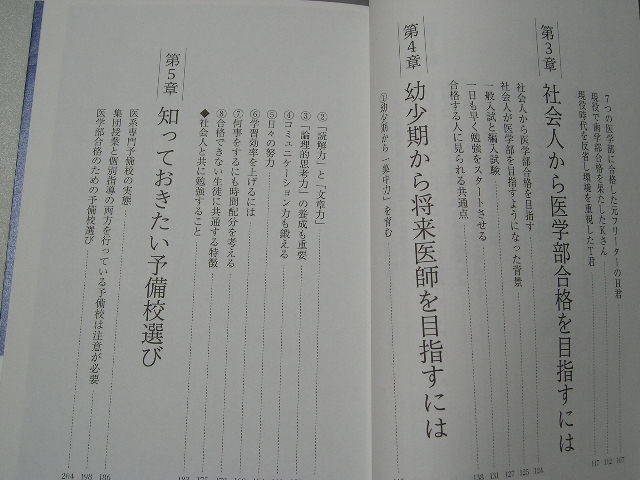 7つの医学部に合格した元フリーターのH君
現役で歯学部合格を果たしたKさん
現役時代を反省し環境を重視したT君
107
112
117
第3章 社会人から医学部合格を目指すには
社会人から医学部合格を目指す
社会人が医学部を目指すようになった背景
一般入試と編入試験
一日も早く勉強をスタートさせる
合格する人に見られる共通点
124
125
127
131
138
第4章 幼少期から将来医師を目指すには
①幼少期から「集中力」を育む
②「読解力」と「文章力」
③「論理的思考力」の養成も重要
④コミュニケーション力も鍛える
⑤日々の努力
⑥学習効率を上げるには
⑦何事をするにも時間配分を考える
⑧合格できない生徒に共通する特徴
◆社会人と共に勉強すること
第5章 知っておきたい予備校選び
医系専門予備校の実態
集団授業と個別指導の両方を行っている予備校は注意が必要
医学部合格のための予備校選び
186
198
204